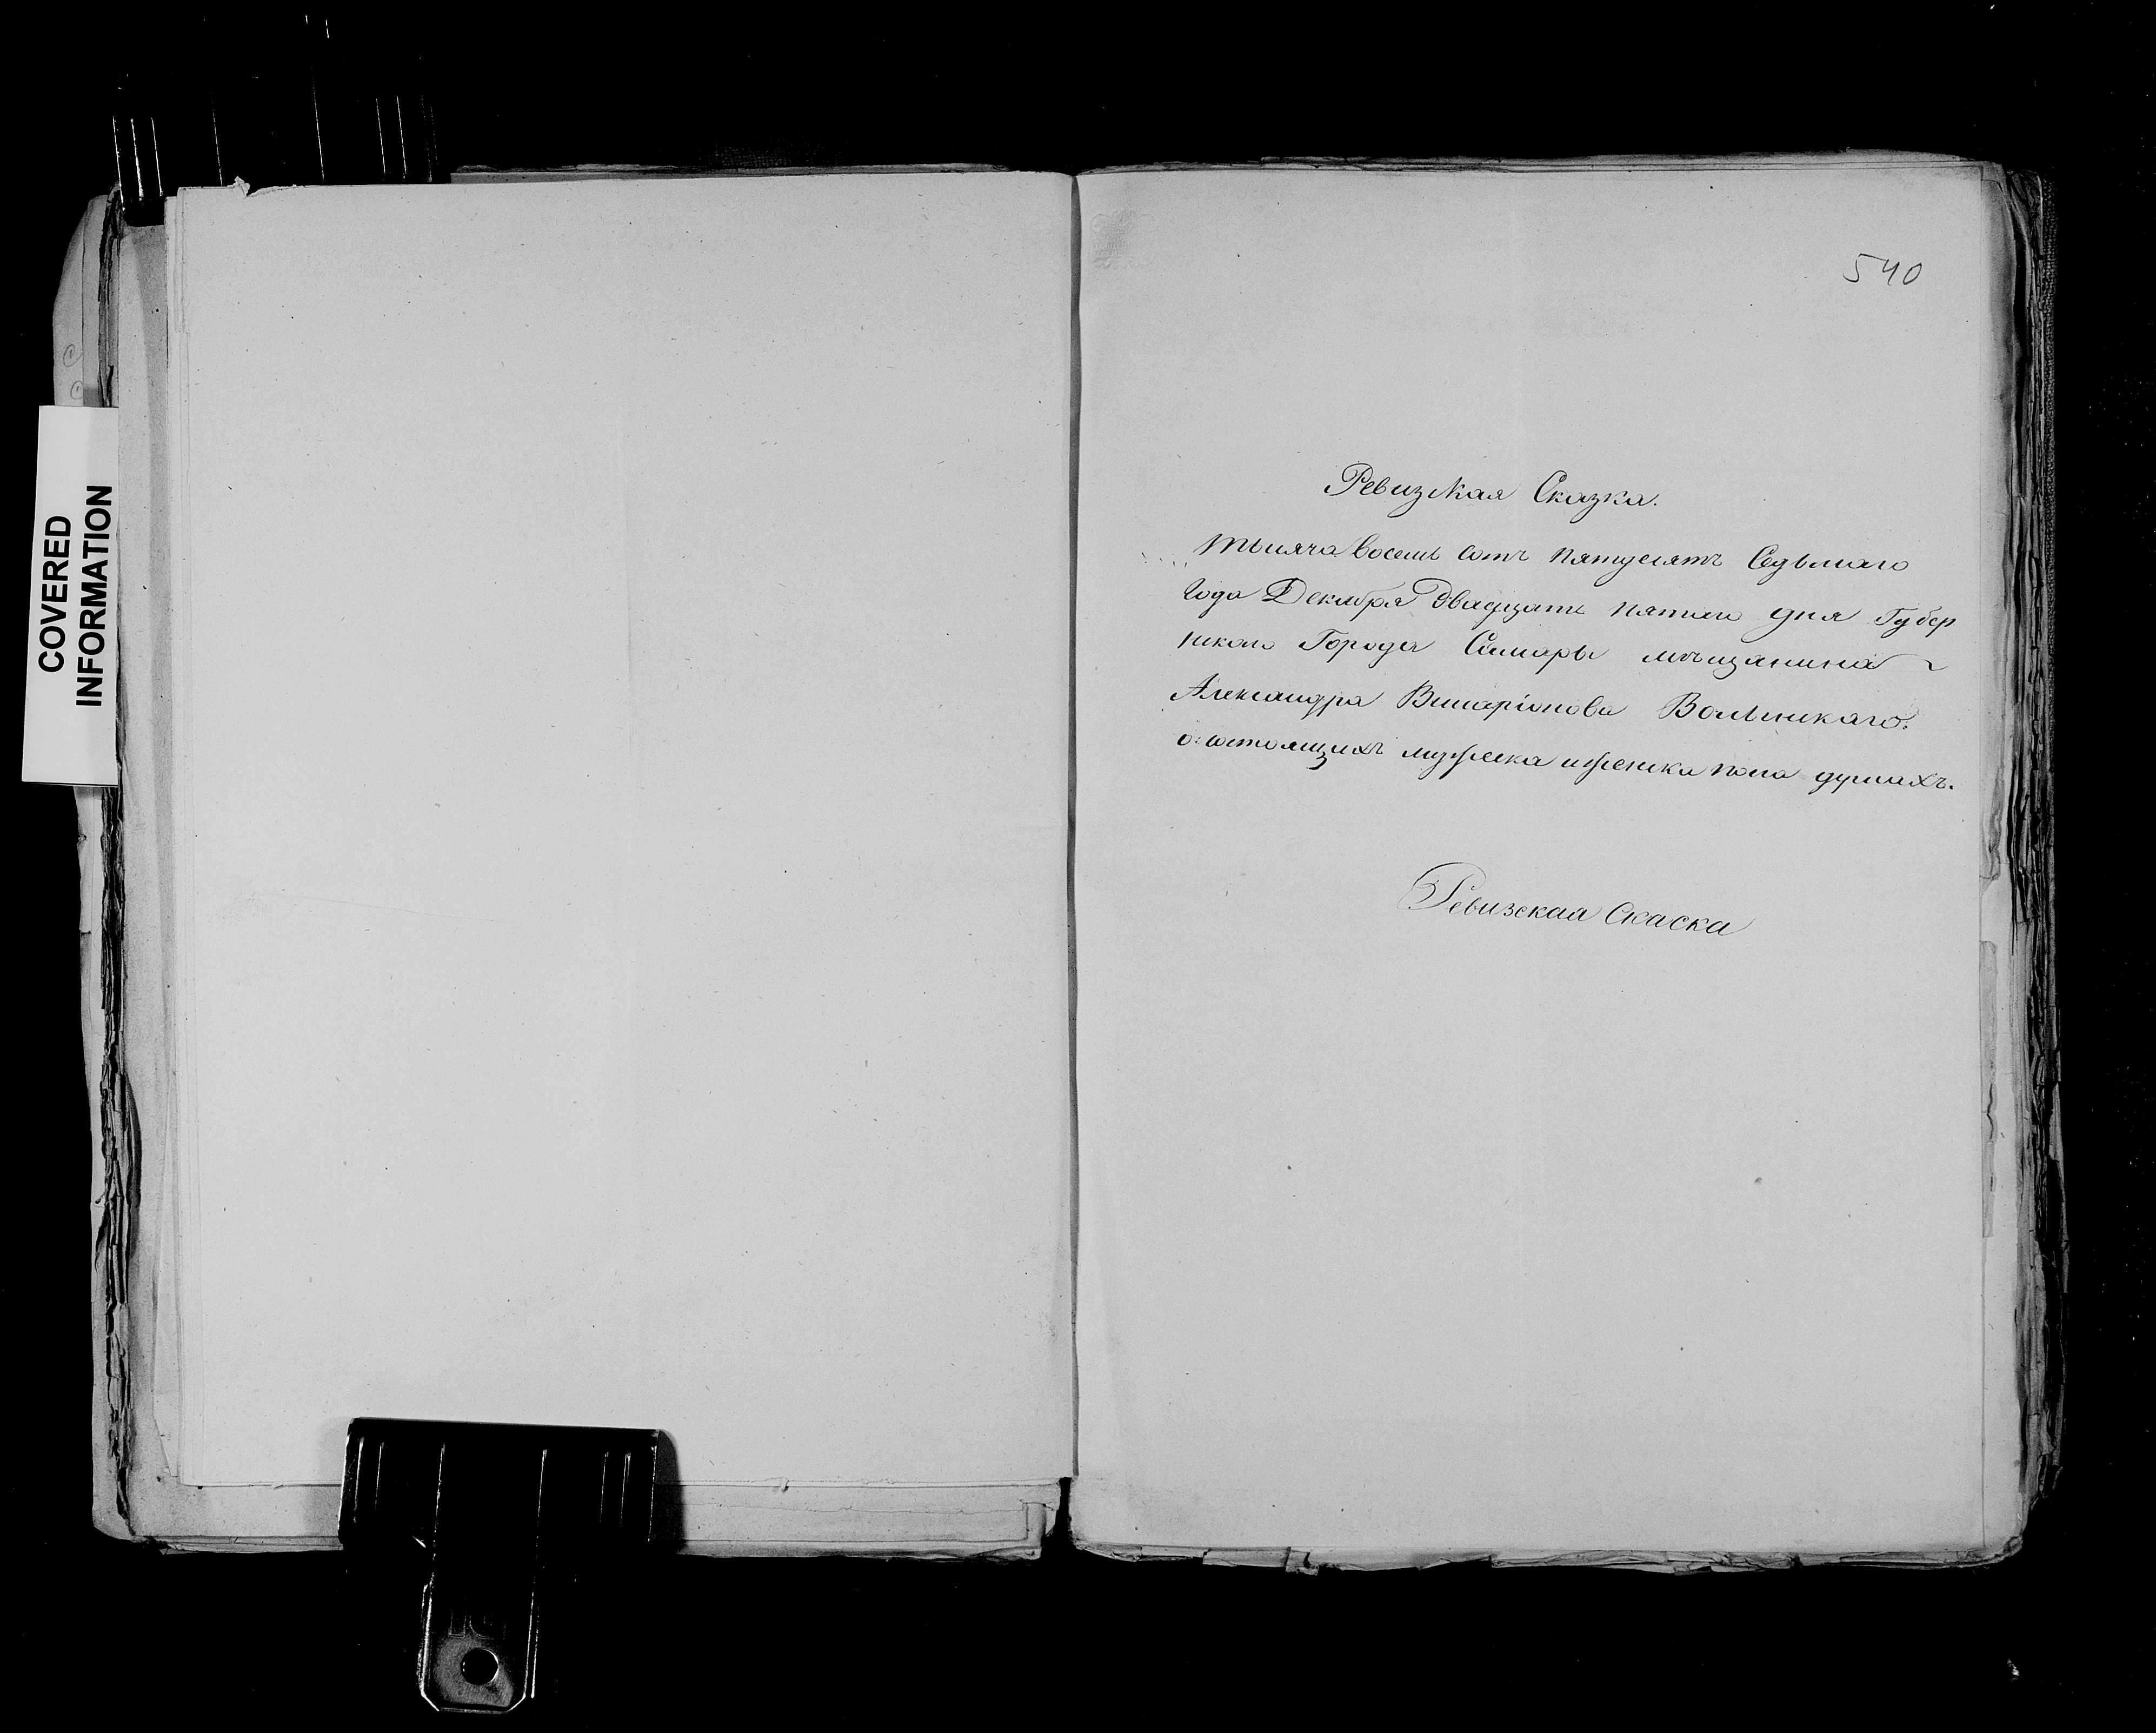 COVERED
INFORMATION
540
Ревизкая Сказка.
тысяча восемь сотъ пятдесятъ Седьмаго
Года Декабря двадцать пятаго дня Губер
нскаго Города Самары мѣщанина
Александра Виссаріонова Волынскаго.
о: состоящихъ мужеска и женска пола душахъ.
Ревизская Скаска